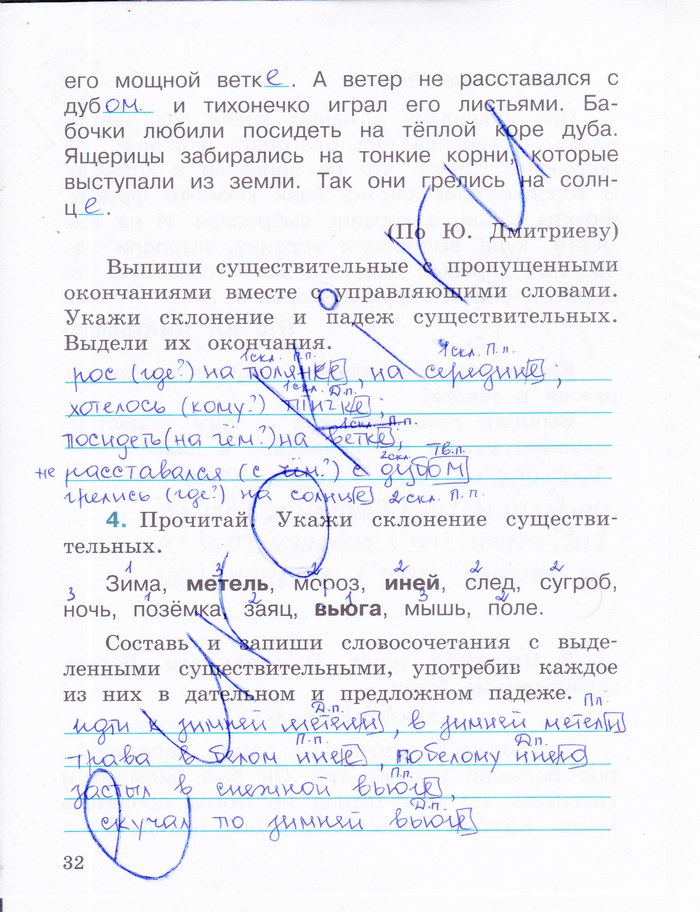 его мощной ветке. А ветер не расставался с
дубом и тихонечко играл его листьями. Ба-
бочки любили посидеть на тёплой коре дуба.
Ящерицы забирались на тонкие корни, которые
выступали из земли. Так они грелись на солн-
це.
(По Ю. Дмитриеву)
Выпиши существительные с пропущенными
окончаниями вместе с управляющими словами.
Укажи склонение и падеж существительных.
Выдели их окончания.
1скл. П.п. 1скл. П.п.
рос (где?) на полянке, на середине;
1скл. Д.п.
хотелось (кому?) птичке;
1скл. П.п.
посидеть (на чём?) на ветке,
2скл. Тв.п.
не расставался (с чем?) с дубом
грелись (где?) на солнце 2 скл. П.п.
4. Прочитай. Укажи склонение существи-
тельных.
1 3 2 2 2 2
Зима, метель, мороз, иней, след, сугроб,
3 1 2 1 3 2
ночь, позёмка, заяц, вьюга, мышь, поле.
Составь и запиши словосочетания с выде-
ленными существительными, употребив каждое
из них в дательном и предложном падеже.
Д.п. П.п.
идти к зимней метели, в зимней метели
П.п. Д.п.
трава в белом инее, по белому инею
П.п.
застыл в снежной вьюге,
Д.п.
скучал по зимней вьюге
32